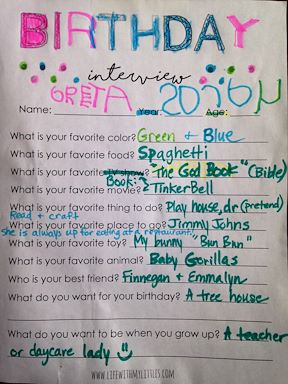 BIRTHDAY
interview
GRETA 2016 4
Name: Year: Age:
What is your favorite color? Green + Blue
What is your favorite food? Spaghetti
What is your favorite TV show? The God Book" (Bible)
Book:
What is your favorite movie? TinkerBell
What is your favorite thing to do? Play house, dr (pretend)
Read + craft
What is your favorite place to go? Jimmy Johns
She is always up for eating at a restaurant!
What is your favorite toy? My bunny "Bun Bun"
What is your favorite animal? Baby Gorillas
Who is your best friend? Finnegan + Emmalyn
What do you want for your birthday? A tree house
What do you want to be when you grow up? A teacher
or daycare lady
WWW.LIFEWITHMYLITTLES.COM